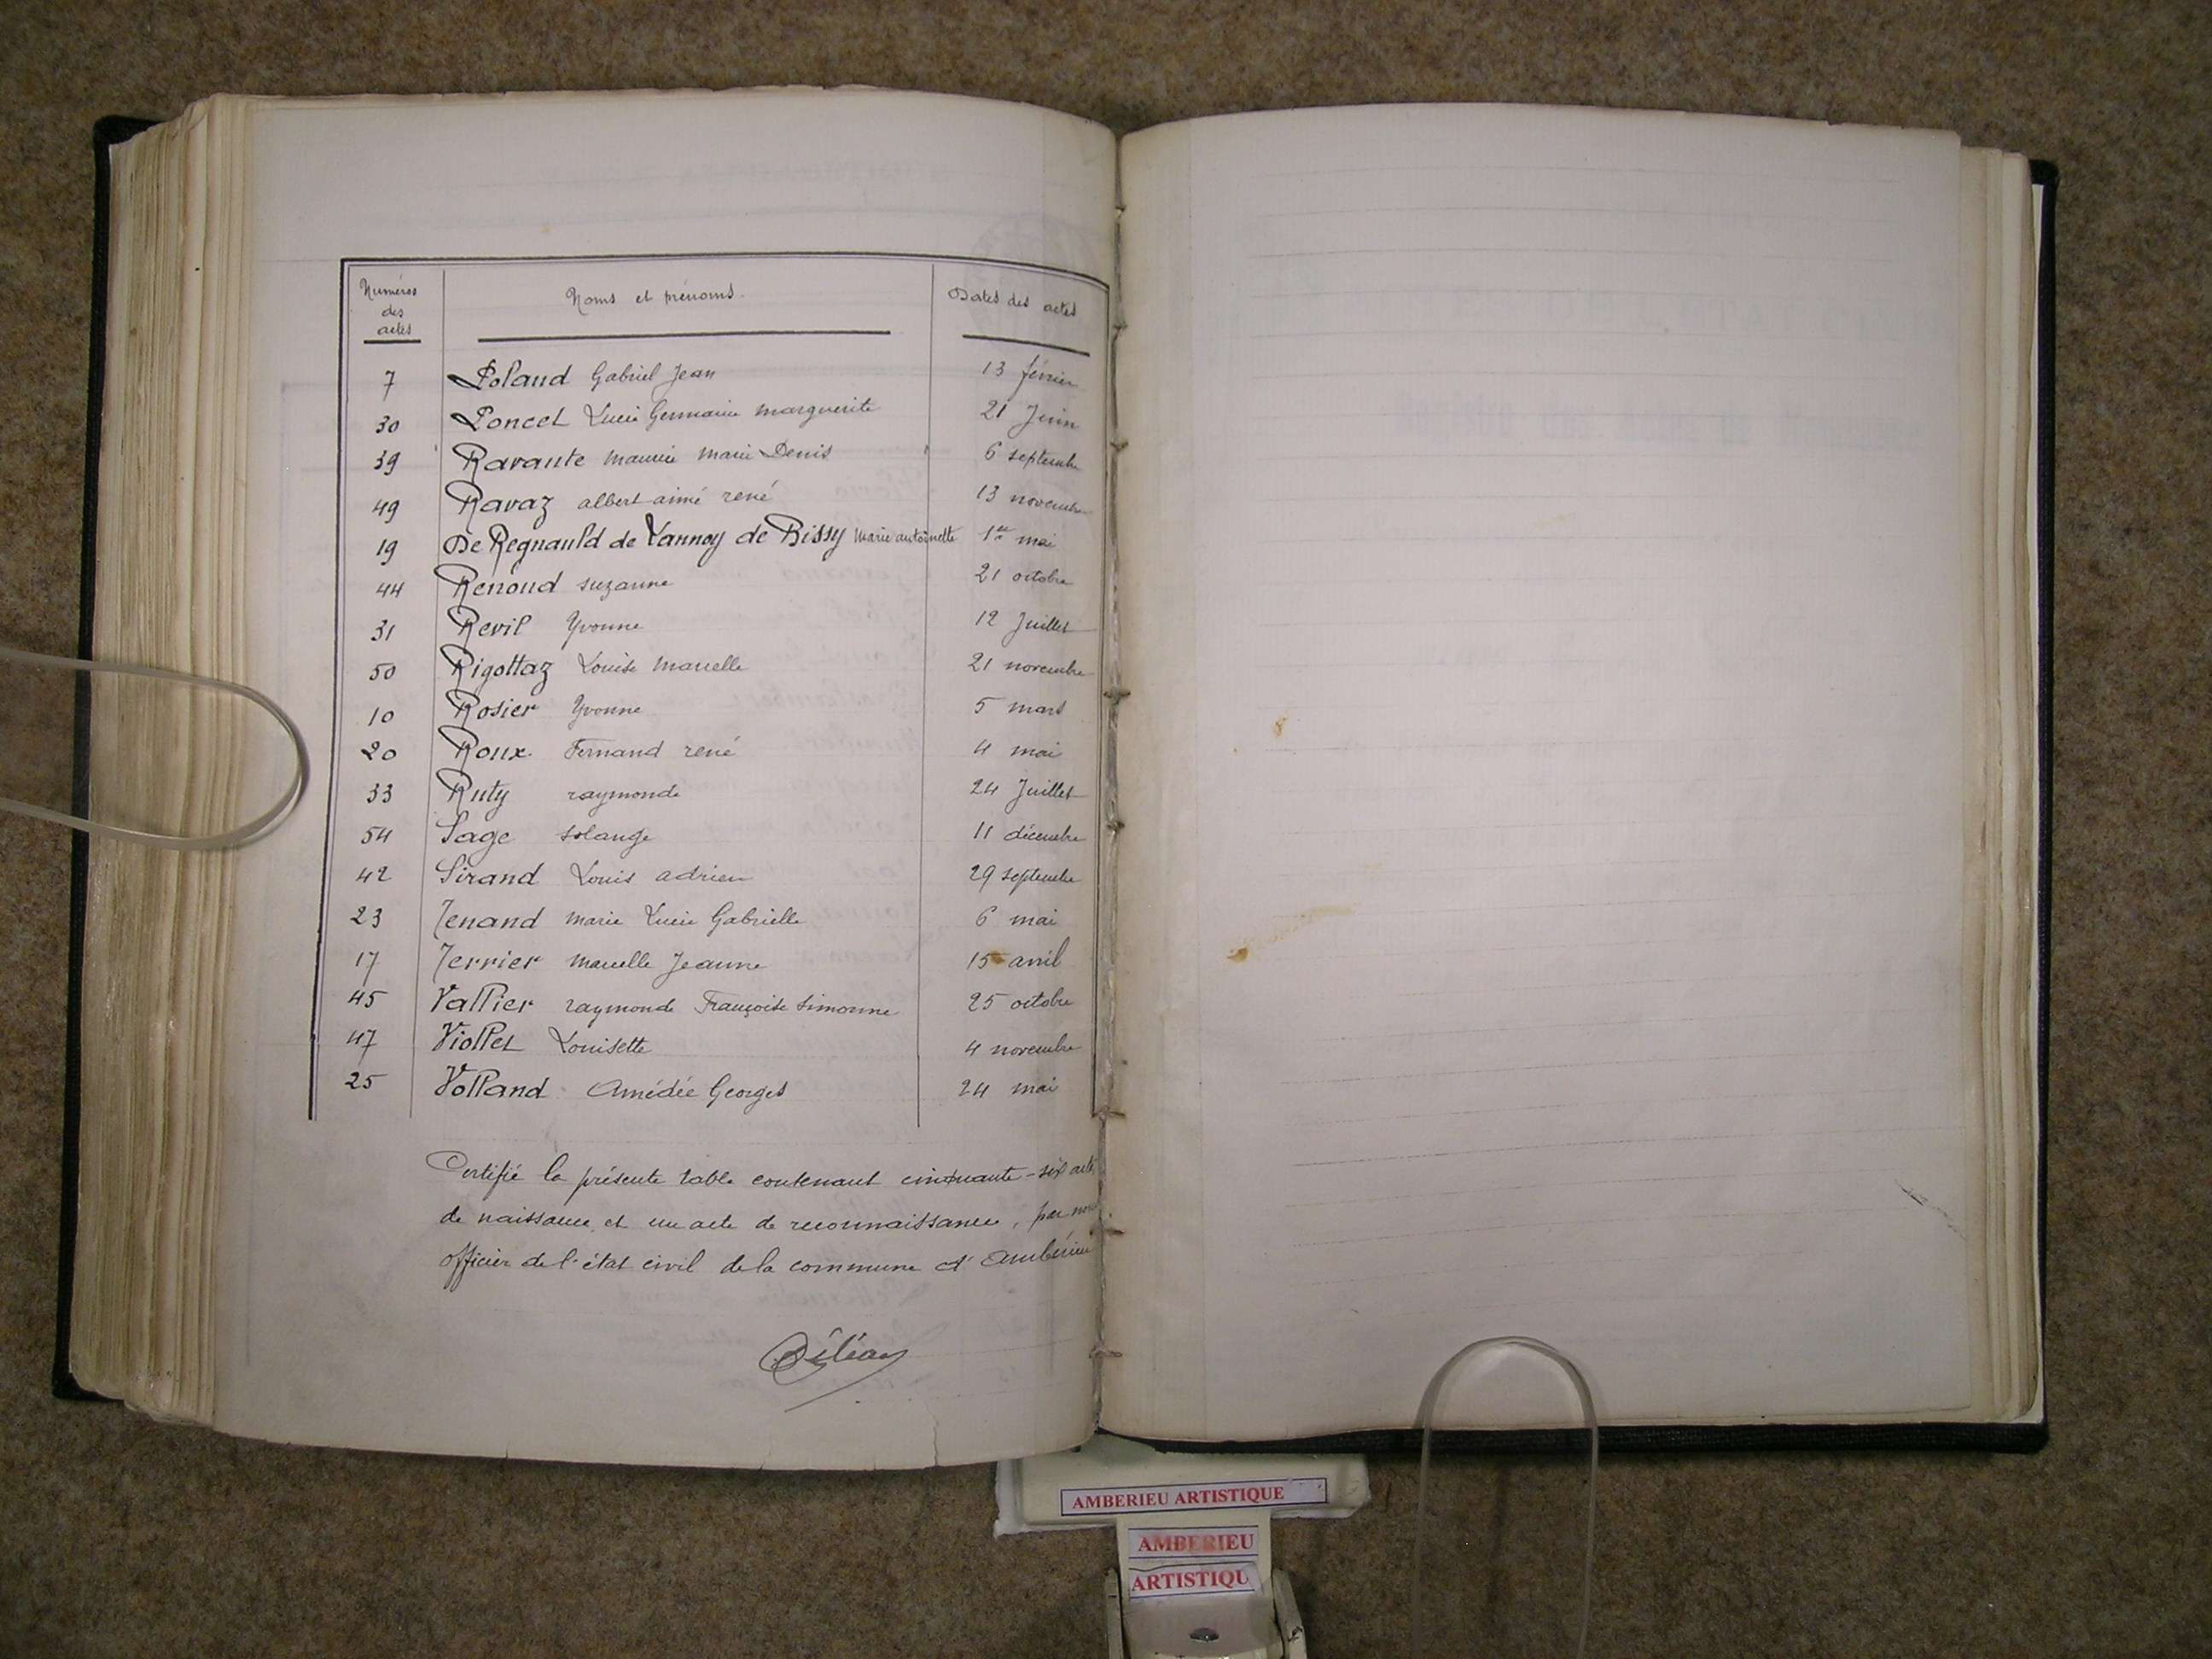 Numéros des actes Noms et prénoms Dates des actes
7 Poland Gabriel Jean 13 février
30 Poncet Lucie Germaine marguerite 21 Juin
39 Ravante maurice marie Denis 6 septembre
49 Ravaz albert aimé rené 13 novembre
19 De Regnauld de Lannoy de Bissy marie antoinette 1er mai
44 Renoud suzanne 21 octobre
31 Revil Yvonne 12 Juillet
50 Rigottaz Louise marcelle 21 novembre
10 Rosier Yvonne 5 mars
20 Roux Fernand rené 4 mai
33 Ruty raymonde 24 Juillet
54 Sage solange 11 décembre
42 Sirand Louis adrien 29 septembre
23 Tenand marie Lucie Gabrielle 6 mai
17 Terrier marcelle Jeanne 15 avril
45 Vallier raymonde Françoise simonne 25 octobre
47 Viollet Louisette 4 novembre
25 Volland Amédée Georges 24 mai
Certifié la présente table contenant cinquante-six actes
de naissance et un acte de reconnaissance, par nous
officier de l'état civil de la commune d'Ambérieu
AMBERIEU ARTISTIQUE
AMBERIEU
ARTISTIQU